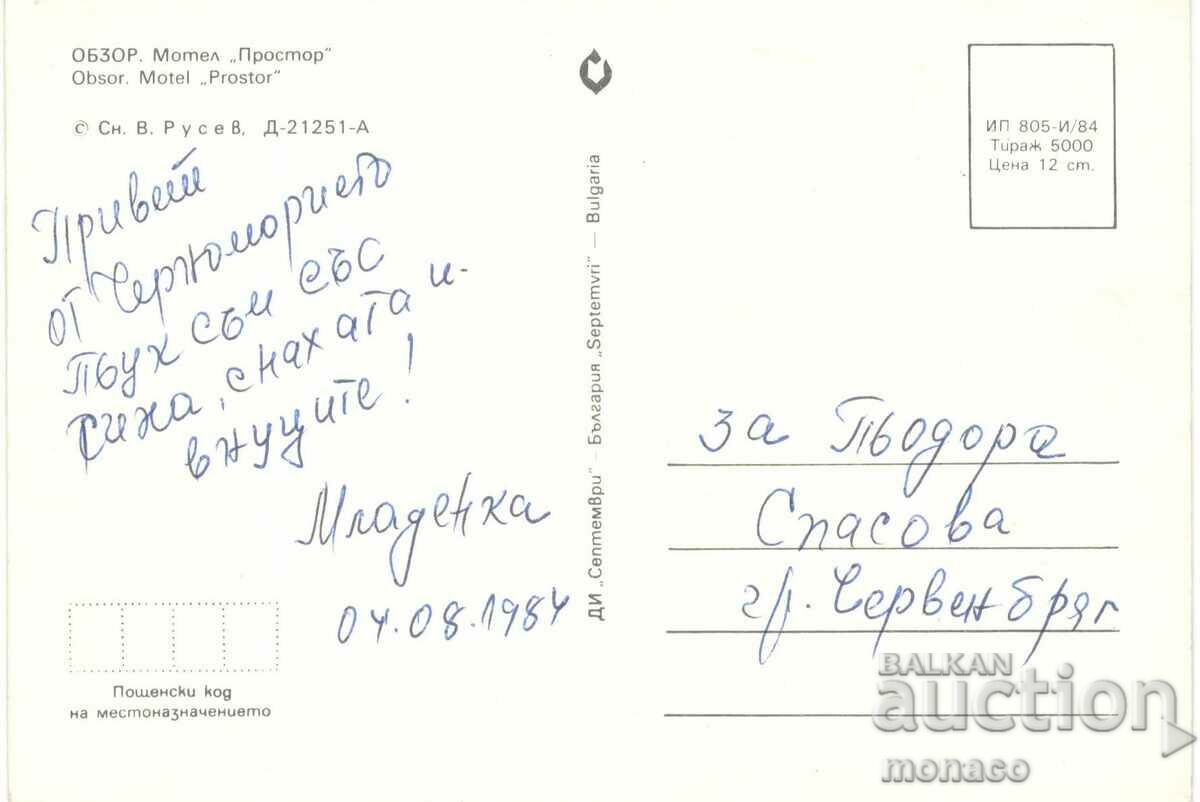 ОБЗОР. Мотел „Простор"
Obsor. Motel „Prostor"
© Сн. В. Русев, Д-21251-А
Привет
от Черноморието
Тьук съм със
сина, снахата и
внуците!
Младенка
04.08.1984
Пощенски код
на местоназначението
ДИ „Септември" — България „Septemvri" — Bulgaria
ИП 805-И/84
Тираж 5000
Цена 12 ст.
за Тьодора
Спасова
гр. Червен бряг
BALKAN
auction
monaco